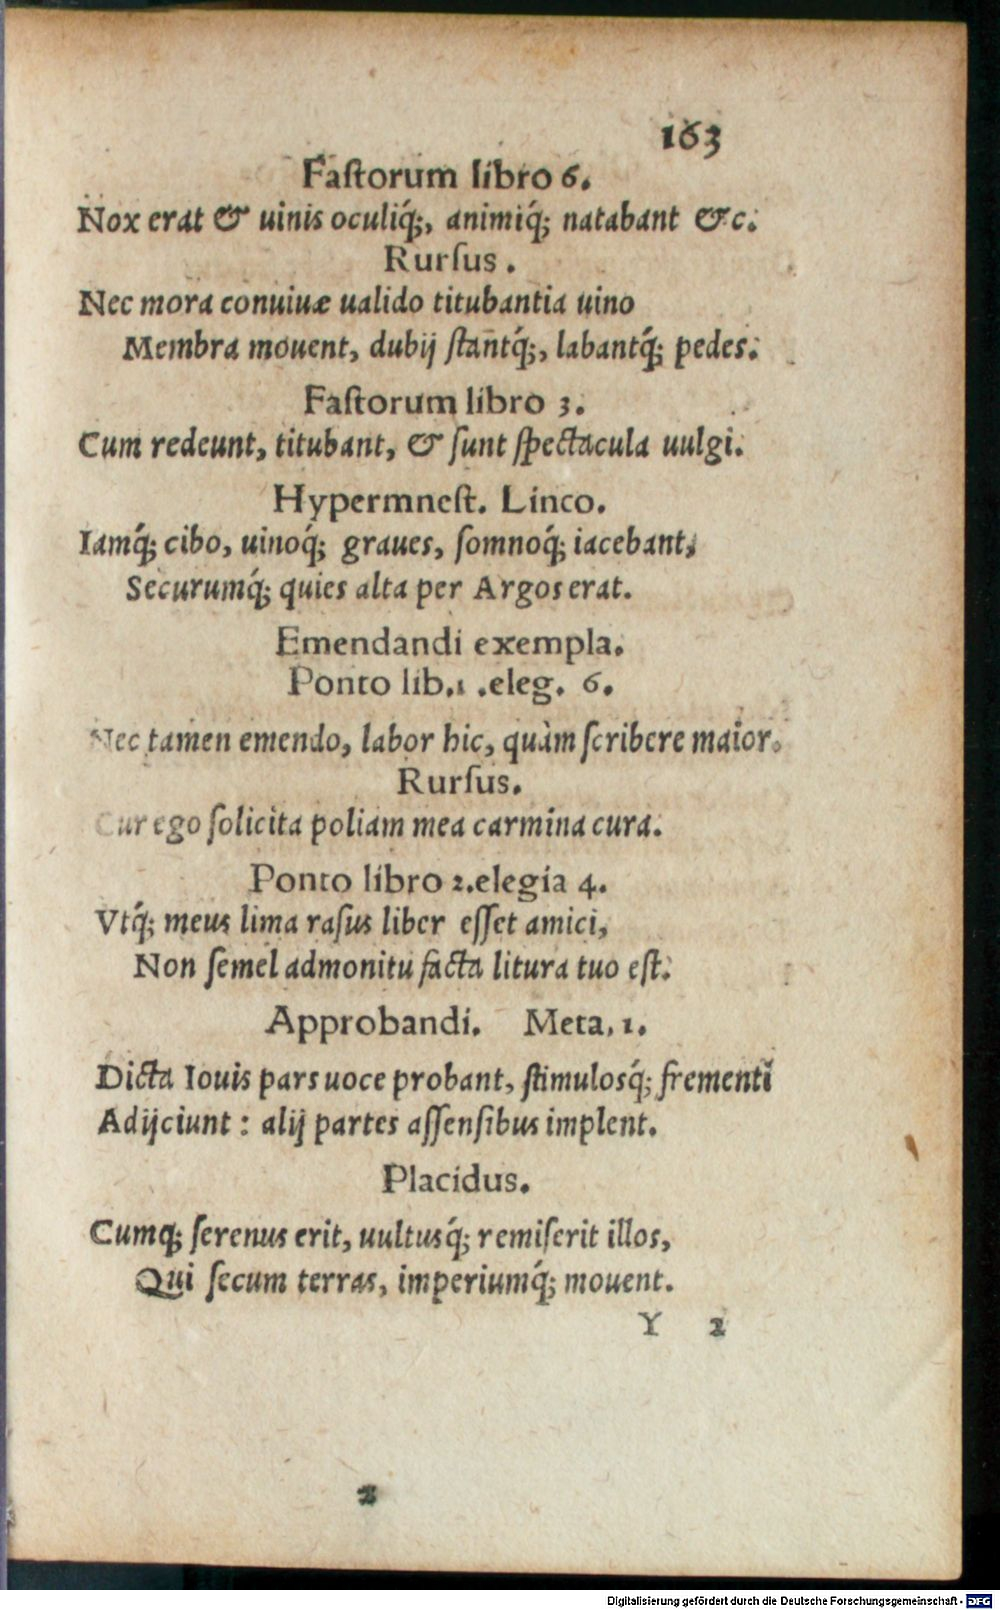 163
Faſtorum libro 6.
Nox erat & uinis oculiq́;, animiq́; natabant &c.
Rurſus.
Nec mora conuiuæ ualido titubantia uino
Membra mouent, dubij ſtantq́;, labantq́; pedes.
Faſtorum libro 3.
Cum redeunt, titubant, & ſunt ſpectacula uulgi.
Hypermneſt. Linco.
Iamq́; cibo, uinoq́; graues, ſomnoq́; iacebant,
Securumq́; quies alta per Argos erat.
Emendandi exempla.
Ponto lib.1 .eleg. 6.
Nec tamen emendo, labor hic, quàm ſcribere maior.
Rurſus.
Cur ego ſolicita poliam mea carmina cura.
Ponto libro 2.elegia 4.
Vtq́; meus lima raſus liber eſſet amici,
Non ſemel admonitu facta litura tuo eſt.
Approbandi. Meta, 1.
Dicta Iouis pars uoce probant, ſtimulosq́; frementi
Adijciunt : alij partes aſſenſibus implent.
Placidus.
Cumq; ſerenus erit, uultusq́; remiſerit illos,
Qui ſecum terras, imperiumq́; mouent.
Y 2
2
Digitalisierung gefördert durch die Deutsche Forschungsgemeinschaft - DFG